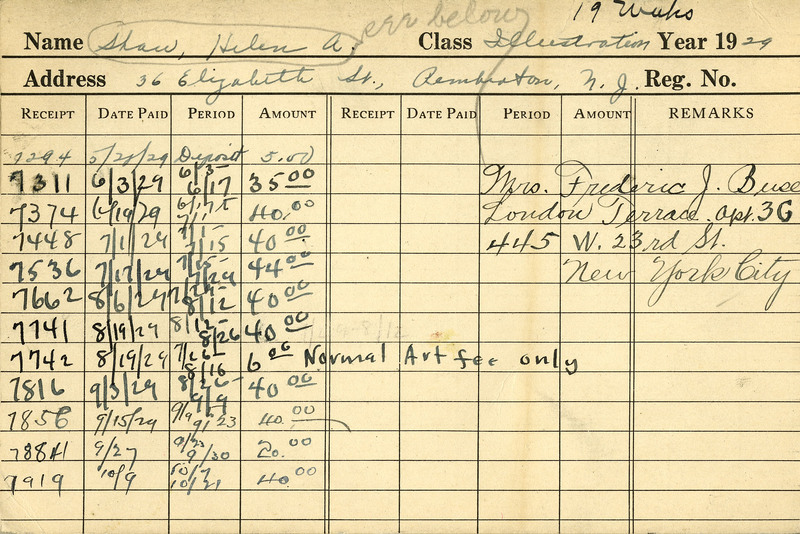 19 Weeks
Name Shaw, Helen A. see below Class Illustration Year 1929
Address 36 Elizabeth St., Pemberton, N. J. Reg. No.
RECEIPT DATE PAID PERIOD AMOUNT RECEIPT DATE PAID PERIOD AMOUNT REMARKS
7294 5/20/29 Deposit 5.00
7311 6/3/29 6/3- 6/17 35.00 Mrs. Frederic J. Buse
7374 6/19/29 6/17- 7/1 40.00 London Terrace. Apt. 3G
7448 7/1/29 7/1- 7/15 40.00 445 W. 23rd St.
7536 7/17/29 7/15- 7/29 44.00 New York City
7662 8/6/29 7/29- 8/12 40.00
7741 8/19/29 8/12- 8/26 40.00
7742 8/19/29 7/26- 8/16 6.00 Normal Art fee only
7816 9/3/29 8/26- 9/9 40.00
7856 9/15/29 9/9 9/23 40.00
7884 9/27 9/23 9/30 20.00
7919 10/9 10/7 10/21 40.00